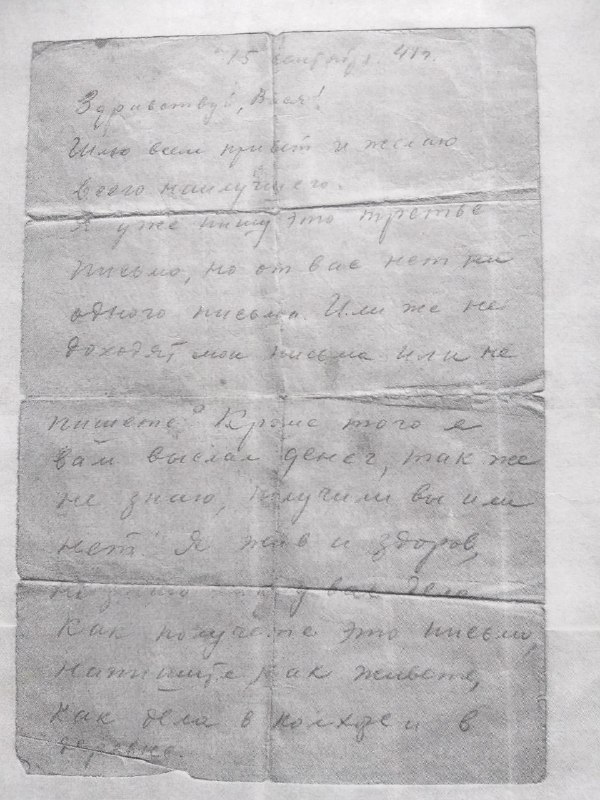 15 сентябр. 41 г.
Здравствуй, Вася!
Шлю вам привет и желаю
всего наилучшего.
Я уже пишу это третье
письмо, но от вас нет ни
одного письма. Или же не
доходят мои письма или не
пишете? Кроме того я
вам выслал денег, так же
не знаю, получили вы или
нет. Я жив и здоров,
не знаю у вас дела
Как получите это письмо,
напишите как живете,
как дела в колхозе и в
деревне.